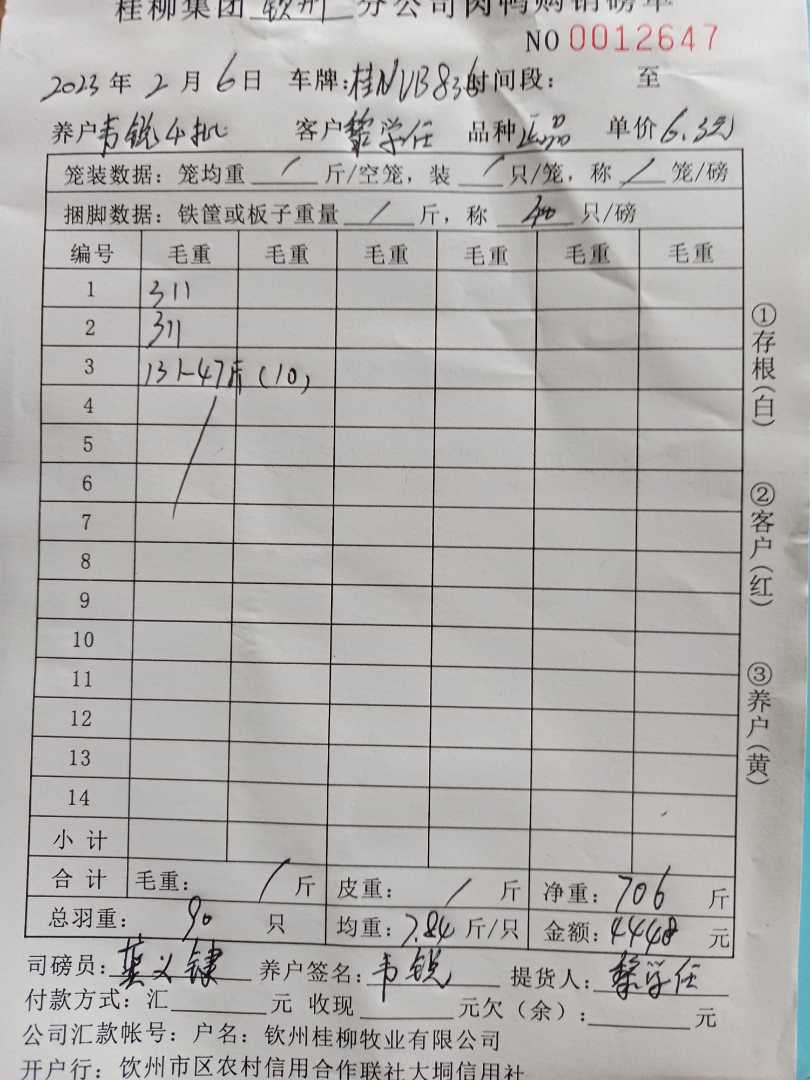 桂柳集团 钦州 分公司肉鸭购销磅单
NO 0012647
2023 年 2 月 6 日 车牌:桂NVB836 时间段: 至
养户 韦锐 客户 黎学任 品种 正品 单价 6.3元
笼装数据: 笼均重 / 斤/空笼, 装 / 只/笼, 称 / 笼/磅
捆脚数据: 铁筐或板子重量 / 斤, 称 40 只/磅
编号 毛重 毛重 毛重 毛重 毛重 毛重
1 311
2 311
3 131-47斤(10)
4
5
6
7
8
9
10
11
12
13
14
小计
合计 毛重: / 斤 皮重: / 斤 净重: 706 斤
总羽重: 90 只 均重: 7.84 斤/只 金额: 4448 元
司磅员: 义键 养户签名: 韦锐 提货人: 黎学任
付款方式: 汇 元 收现 元欠(余): 元
公司汇款帐号: 户名: 钦州桂柳牧业有限公司
开户行: 钦州市区农村信用合作联社大垌信用社
①存根(白)
②客户(红)
③养户(黄)